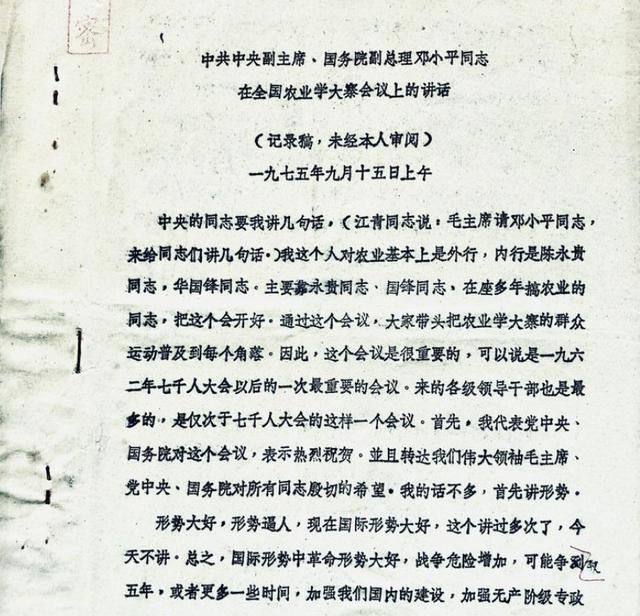 密
中共中央副主席、国务院副总理邓小平同志
在全国农业学大寨会议上的讲话
（记录稿，未经本人审阅）
一九七五年九月十五日上午
中央的同志要我讲几句话，（江青同志说：毛主席请邓小平同志，
来给同志们讲几句话。）我这个人对农业基本上是外行，内行是陈永贵
同志，华国锋同志。主要靠永贵同志、国锋同志、在座多年搞农业的
同志，把这个会开好。通过这个会议，大家带头把农业学大寨的群众
运动普及到每个角落。因此，这个会议是很重要的，可以说是一九六
二年七千人大会以后的一次最重要的会议。来的各级领导干部也是最
多的，是仅次于七千人大会的这样一个会议。首先，我代表党中央、
国务院对这个会议，表示热烈祝贺。並且转达我们伟大领袖毛主席、
党中央、国务院对所有同志殷切的希望。我的话不多，首先讲形势。
形势大好，形势逼人，现在国际形势大好，这个讲过多次了，今
天不讲。总之，国际形势中革命形势大好，战争危险增加，可能争
五年，或者更多一些时间，加强我们国内的建设，加强无产阶级专政